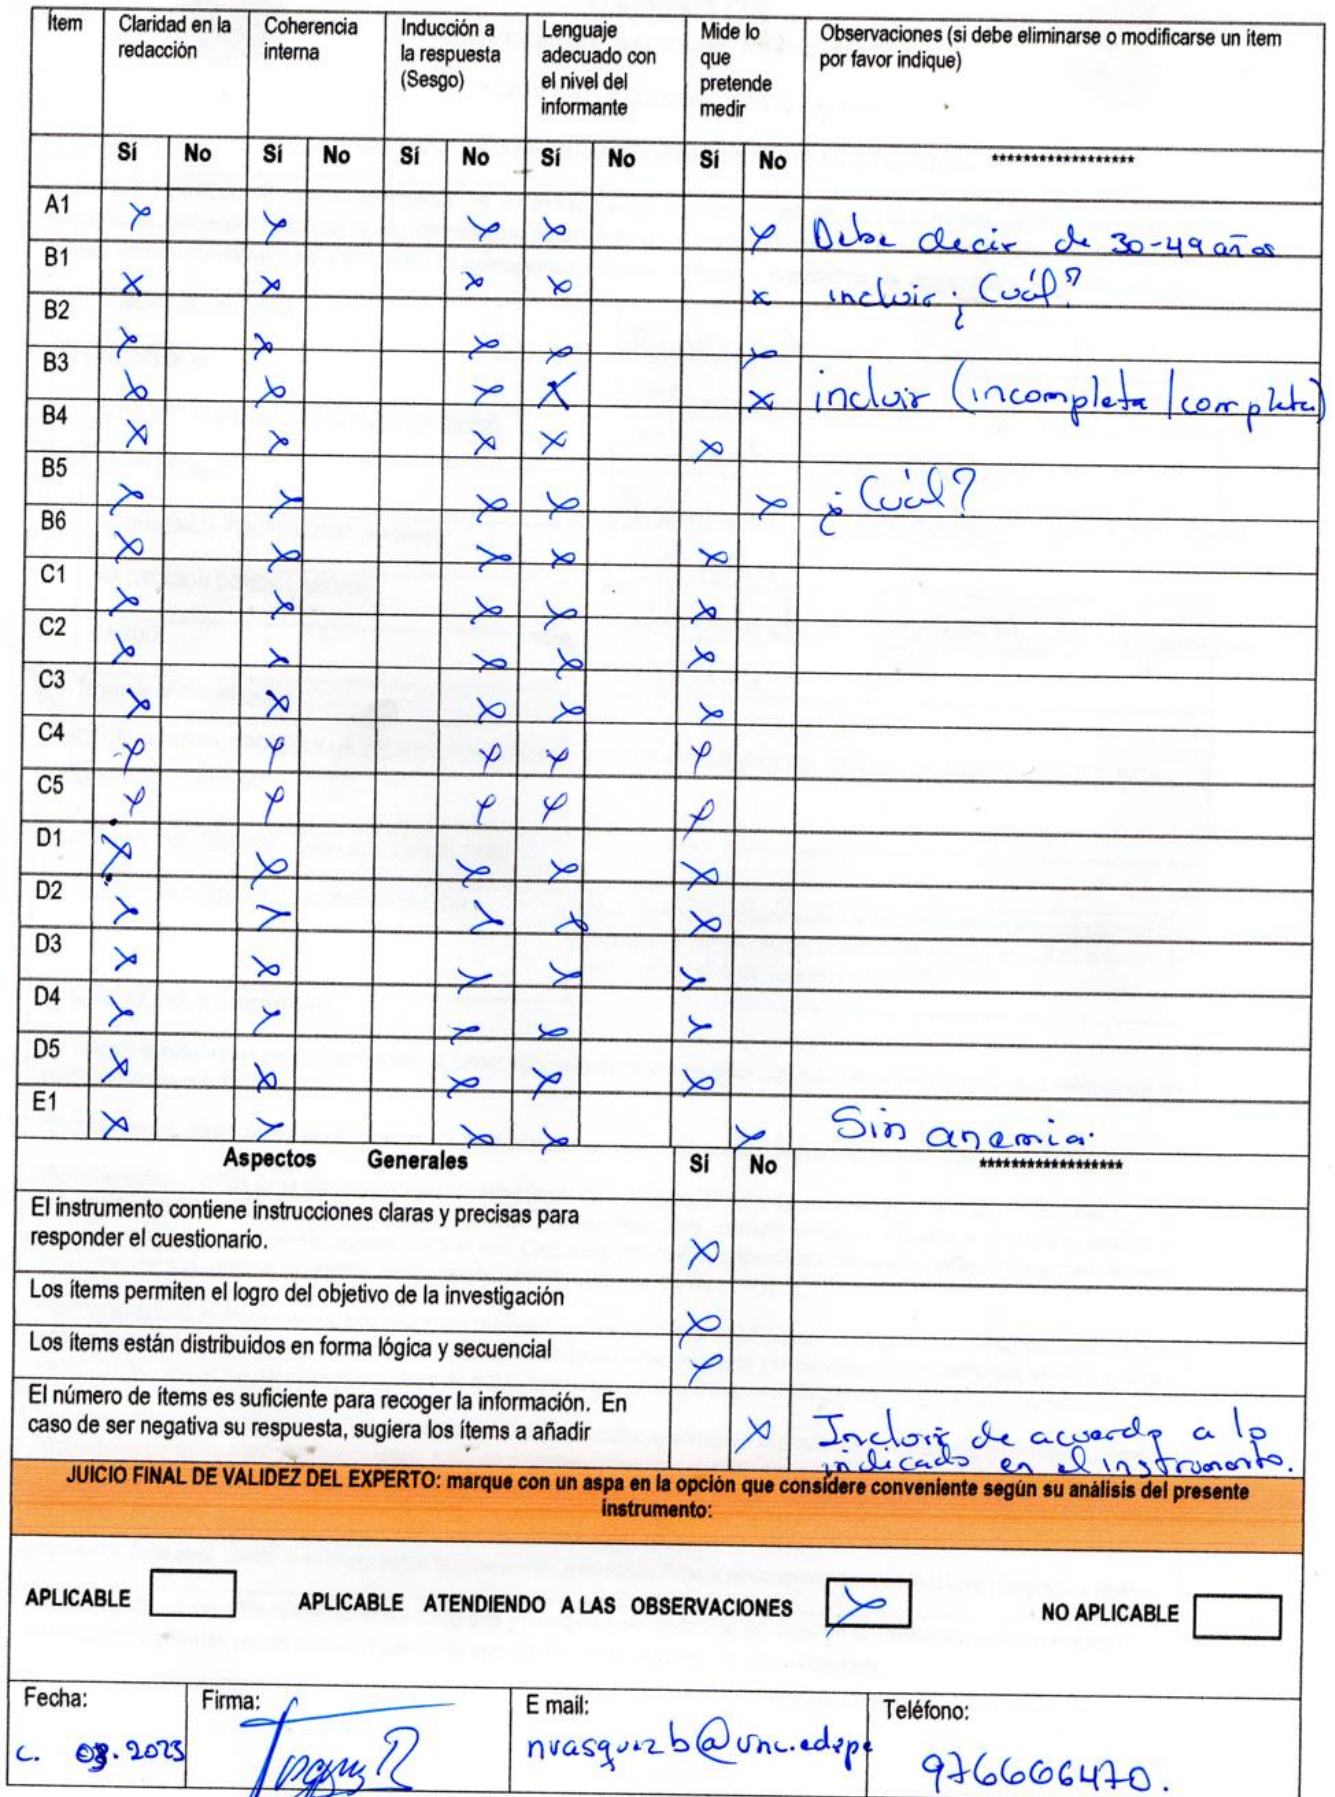 Ítem Claridad en la redacción Coherencia interna Inducción a la respuesta (Sesgo) Lenguaje adecuado con el nivel del informante Mide lo que pretende medir Observaciones (si debe eliminarse o modificarse un ítem por favor indique)
Sí No Sí No Sí No Sí No Sí No ******************
A1 x x x x x Debe decir de 30-49 años
B1 x x x x x incluir ¿Cuál?
B2 x x x x x
B3 x x x x x incluir (incompleta / completa)
B4 x x x x x
B5 x x x x x ¿Cuál?
B6 x x x x x
C1 x x x x x
C2 x x x x x
C3 x x x x x
C4 x x x x x
C5 x x x x x
D1 x x x x x
D2 x x x x x
D3 x x x x x
D4 x x x x x
D5 x x x x x
E1 x x x x x Sin anemia.
Aspectos Generales Sí No ******************
El instrumento contiene instrucciones claras y precisas para
responder el cuestionario. x
Los ítems permiten el logro del objetivo de la investigación x
Los ítems están distribuidos en forma lógica y secuencial x
El número de ítems es suficiente para recoger la información. En
caso de ser negativa su respuesta, sugiera los ítems a añadir x Incluir de acuerdo a lo
indicado en el instrumento.
JUICIO FINAL DE VALIDEZ DEL EXPERTO: marque con un aspa en la opción que considere conveniente según su análisis del presente
instrumento:
APLICABLE APLICABLE ATENDIENDO A LAS OBSERVACIONES x NO APLICABLE
Fecha: Firma: E mail: Teléfono:
c. 03.2023 nvasquezb@unc.edu.pe 976606470.